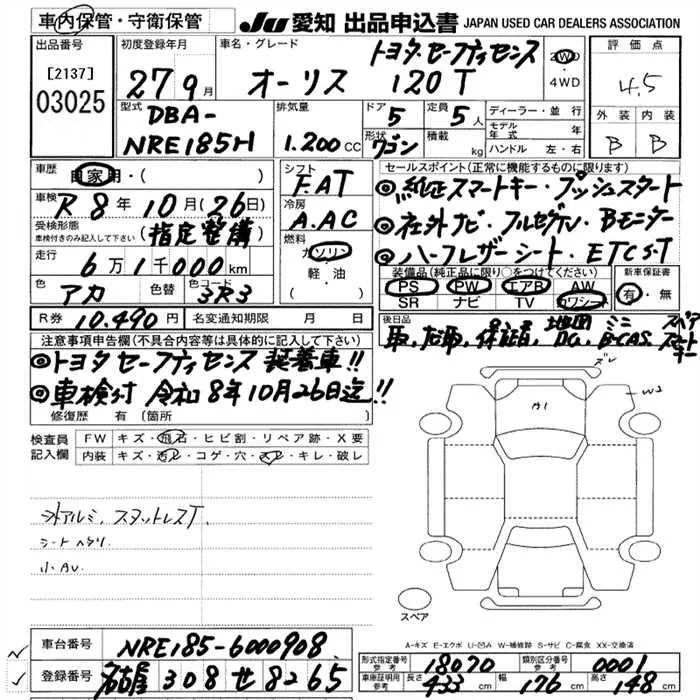 車内保管・守衛保管
JU 愛知 出品申込書 JAPAN USED CAR DEALERS ASSOCIATION
出品番号
[2137]
03025
初度登録年月
27 9月
車名・グレード
トヨタ.セーフティセンス
オーリス 120T
2WD
・
4WD
評価点
4.5
外装 内装
B B
型式
DBA-
NRE185H
排気量
1.200cc
ドア
5
定員
5人
形状
ワゴン
積載
kg
ディーラー・並行
モデル年式 年
ハンドル 左・右
車歴
自家用・( )
車検
R8年10月(26日)
受検形態
車検付きのみ記入して下さい (指定整備)
走行
6万1千000km
色
アカ
色替
色コード
3R3
シフト
F.AT
冷房
A.AC
燃料
ガソリン
軽・油
セールスポイント(正常に機能するものに限ります)
◎純正スマートキー・プッシュスタート
◎社外ナビ・フルセグTV・Bモニター
◎ハーフレザーシート・ETC S・T
装備品(純正品に限り○をつけてください)
PS PW エアB AW
SR ナビ TV カワシート
新車保証書
有・無
R券 10.490円 名変通知期限 月 日
後日品
取,記取,保証書,地図DC,ミニB-CAS,スペアスマートキー
注意事項申告欄(不具合内容等は具体的に記入して下さい)
◎トヨタ セーフティセンス 装着車!!
◎車検付 令和8年10月26日迄!!
修復歴 有 (箇所
検査員
記入欄
FW キズ・飛石・ヒビ割・リペア跡・X要
内装 キズ・汚レ・コゲ・穴・スレ・キレ・破レ
外アルミ、スタットレスT.
シートヘタリ.
小AU.
A1
W2
スペア
A-キズ E-エクボ U-凹み W-補修跡 S-サビ C-腐食 XX-交換済
車台番号 NRE185-6000908
登録番号 名古屋 308 せ 8265
形式指定番号
参考
18070
類別区分番号
参考
0001
車庫証明用
参考
長さ 433cm 幅 176cm 高さ 148cm